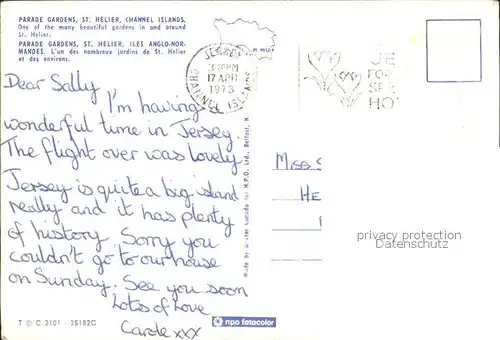 PARADE GARDENS, ST. HELIER, CHANNEL ISLANDS.
One of the many beautiful gardens in and around
St. Helier.
PARADE GARDENS, ST. HELIER, ILES ANGLO-NOR-
MANDES. L'un des nombreux jardins de St. Helier
et des environs.
Dear Sally
I'm having a
wonderful time in Jersey
The flight over was lovely.
Jersey is quite a big island
really and it has plenty
of history. Sorry you
couldn't go to our house
on Sunday. See you soon
Lots of Love
Carole xxx
T © C 2101 - 25182C
npo fotocolor
JERSEY
17 APR
1973
CHANNEL ISLANDS
JE
FOR
HO
MISS
HE
privacy protection
Datenschutz